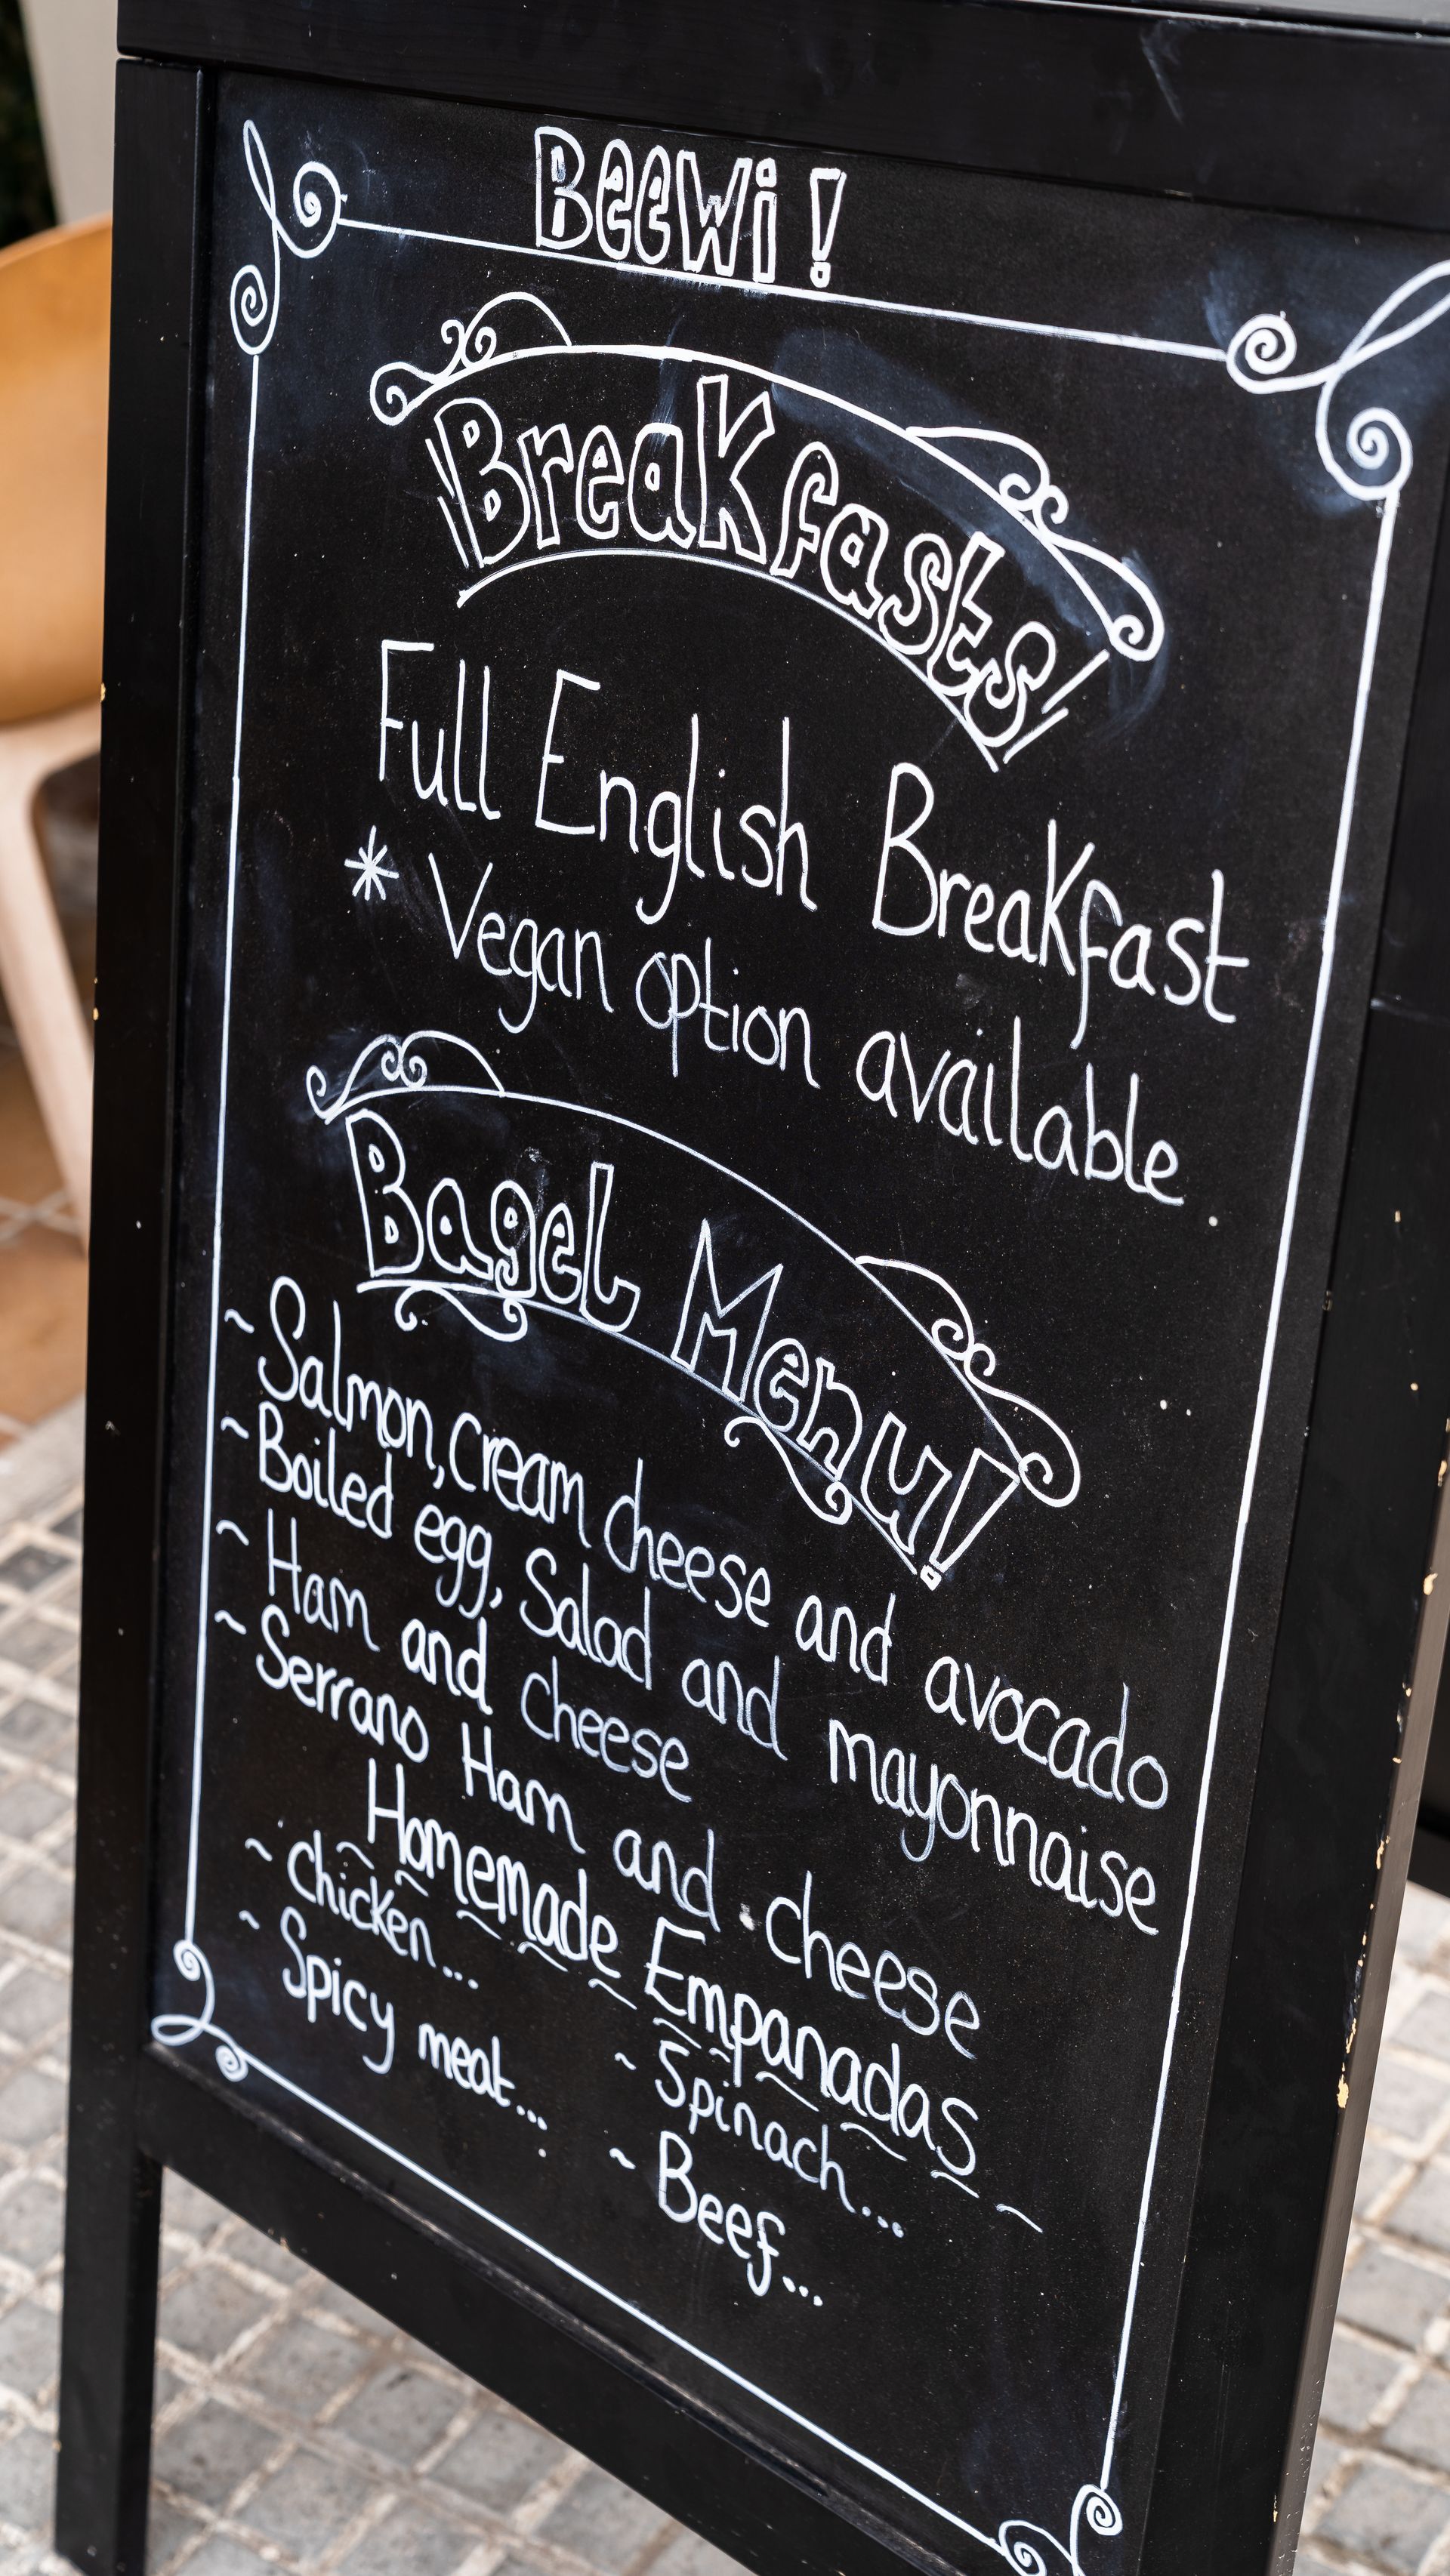 BeeWi!
Breakfasts
Full English Breakfast
* Vegan option available.
Bagel Menu!
~ Salmon, cream cheese and avocado
~ Boiled egg, Salad and mayonnaise
~ Ham and cheese
~ Serrano Ham and cheese
Homemade Empanadas
~ Chicken...
~ Spicy meat...
~ Spinach...
~ Beef...